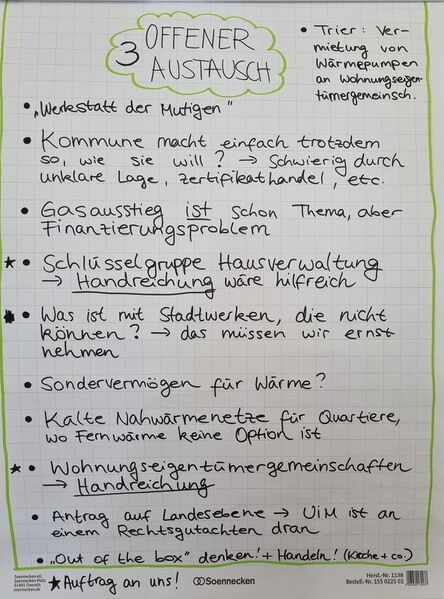 3 OFFENER
AUSTAUSCH
• Trier: Ver-
mietung von
Wärmepumpen
an Wohnungseigen-
tümergemeinsch.
• „Werkstatt der Mutigen"
• Kommune macht einfach trotzdem
so, wie sie will? → Schwierig durch
unklare Lage, Zertifikathandel, etc.
• Gasausstieg ist schon Thema, aber
Finanzierungsproblem
★ • Schlüsselgruppe Hausverwaltung
→ Handreichung wäre hilfreich
★ • Was ist mit Stadtwerken, die nicht
können? → das müssen wir ernst
nehmen
• Sondervermögen für Wärme?
• Kalte Nahwärmenetze für Quartiere,
wo Fernwärme keine Option ist
★ • Wohnungseigentümergemeinschaften
→ Handreichung
• Antrag auf Landesebene → UiM ist an
einem Rechtsgutachten dran
• „Out of the box" denken! + Handeln! (Kirche + co.)
★ Auftrag an uns!
Soennecken eG
Soennecken-Platz
51491 Overath
soennecken.de
Soennecken
Herst.-Nr. 1138
Bestell.-Nr. 155 0225 02